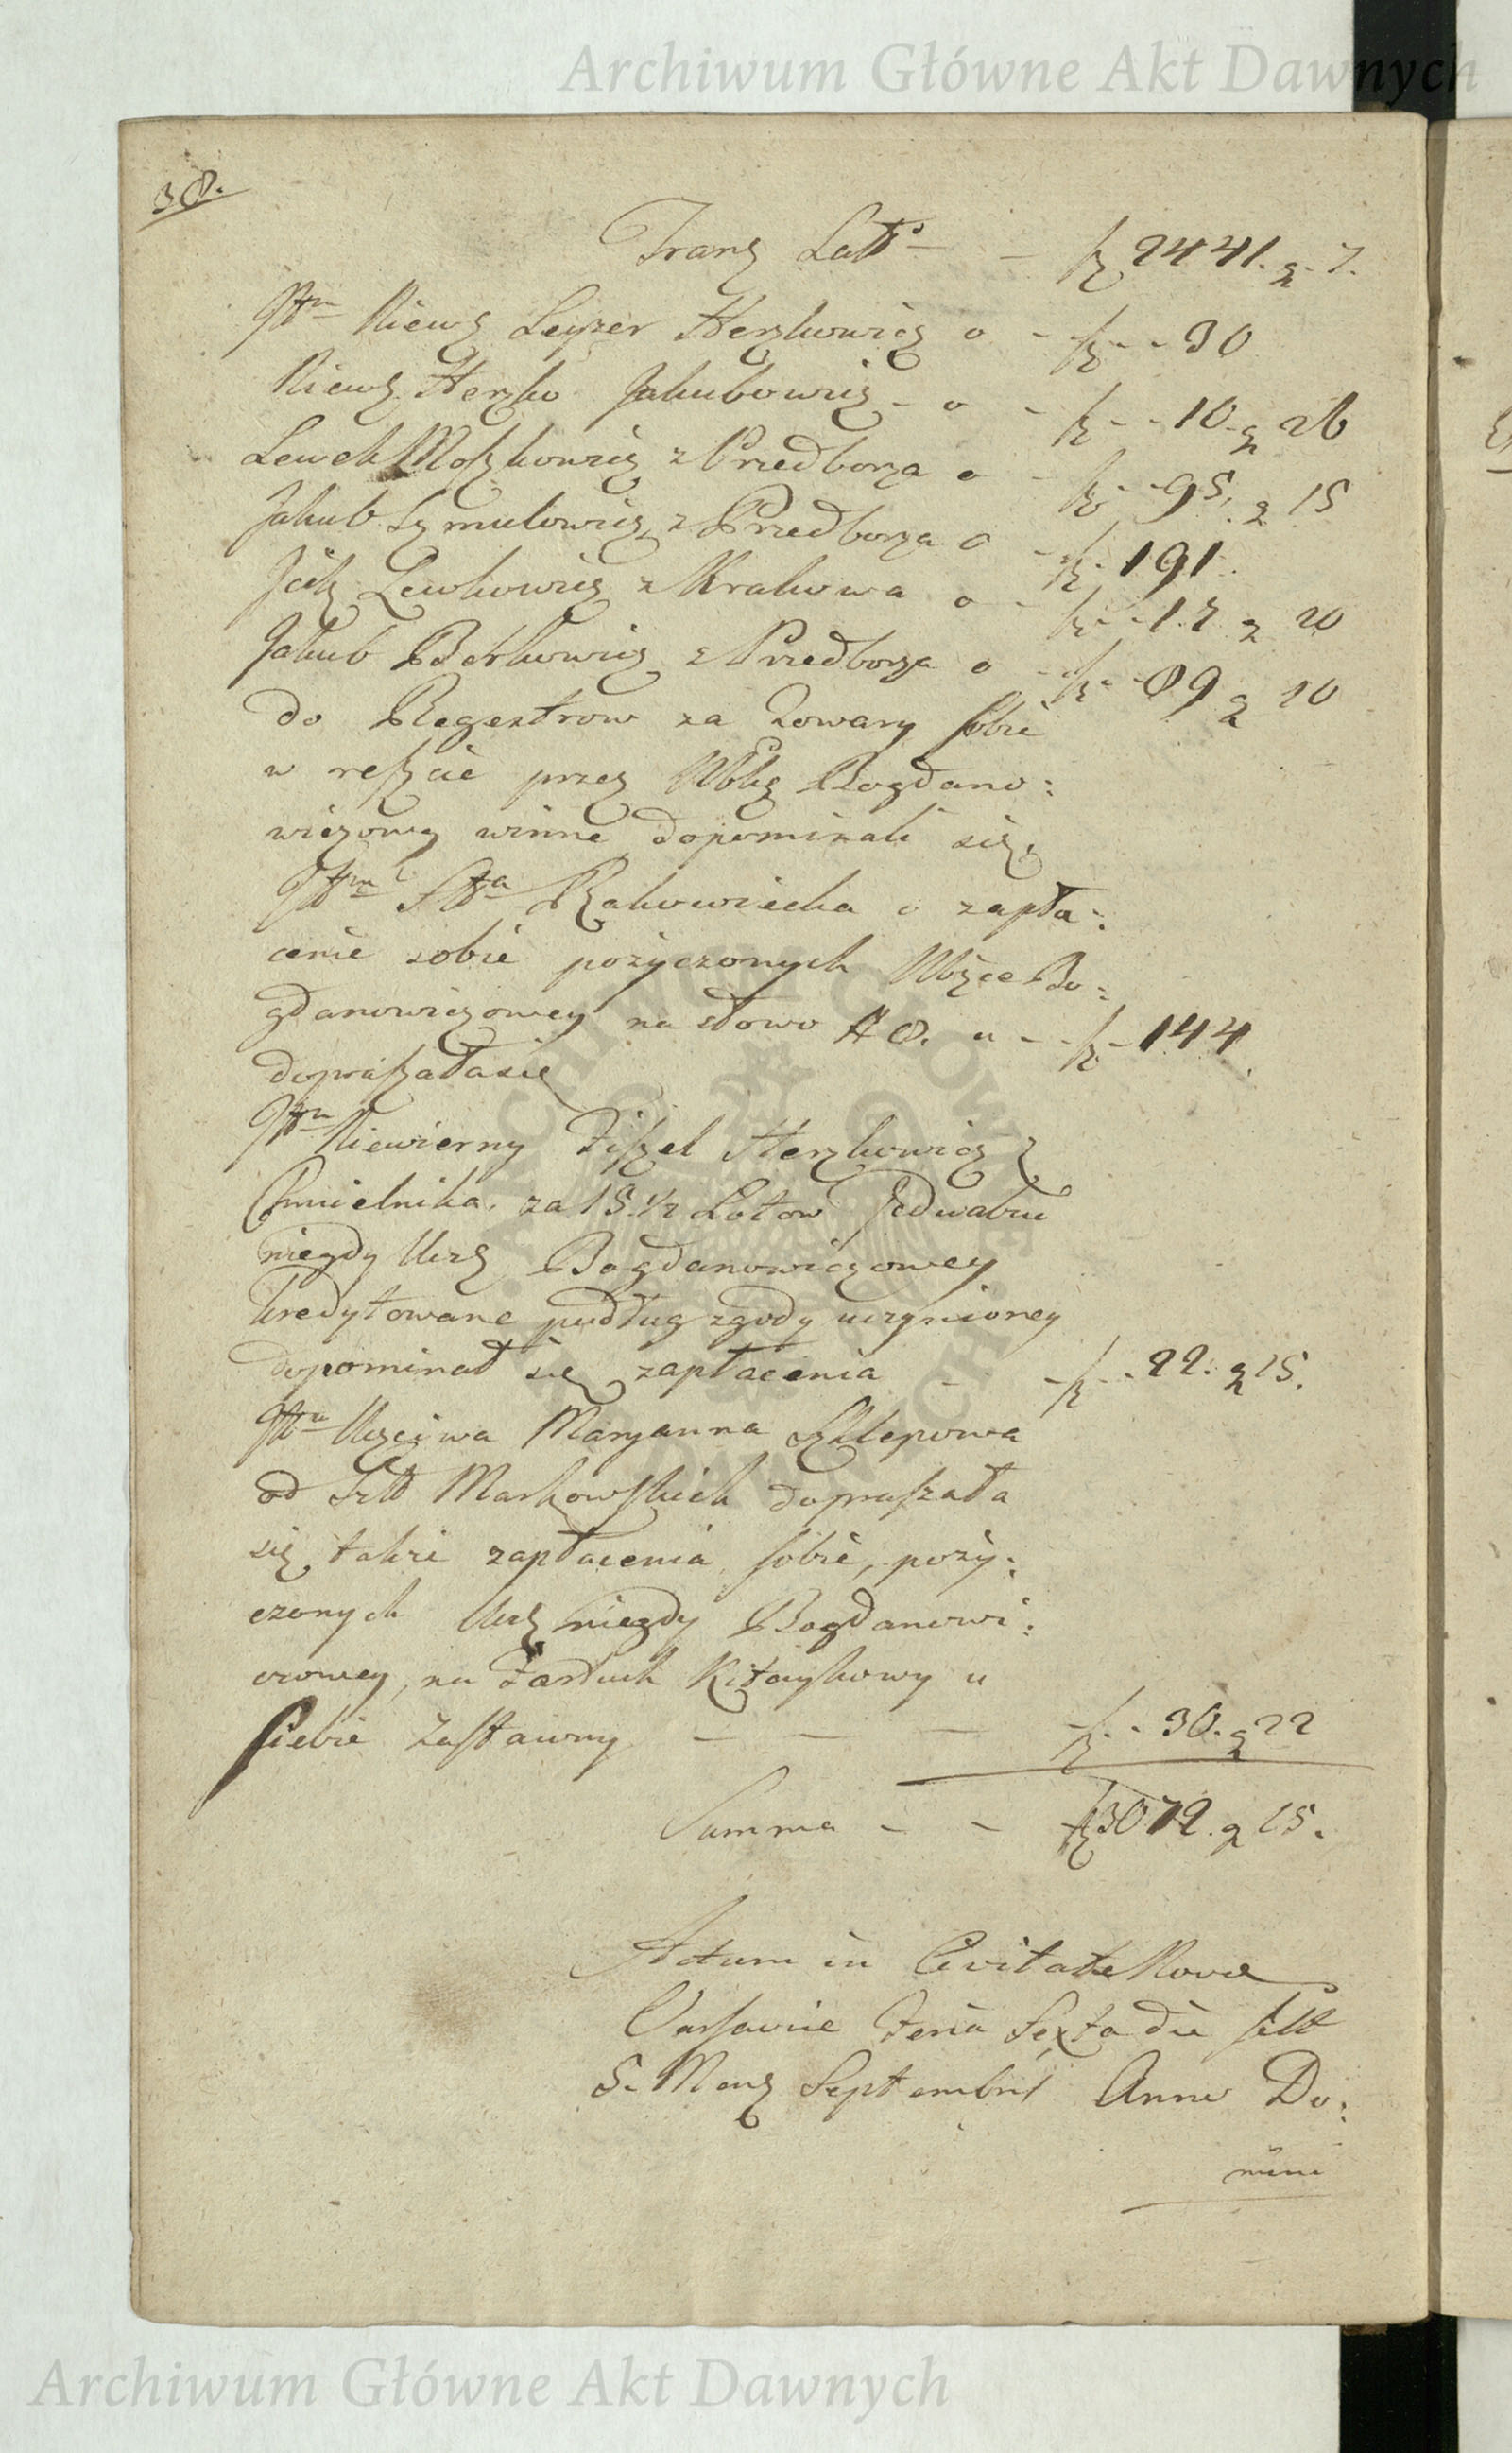 Archiwum Główne Akt Dawnych
38.
Trans Latt — fz 2441. g. 7.
Ittm Niews Leyzer Herszkowicz o - fz - - 30
Niews Herszko Jakubowicz - o - fz - - 10. g 26
Lewek Moszkowicz z Przedborza o - fz - - 95. g 15
Jakub Szmulowicz z Przedborza o - fz - 191.
Lewkowicz z Krakowa o - fz - - 17 g 20
Jakub Berkowicz z Przedborza o - fz - - 89 g 10
do Regestrow za Towary sobie
w reszcie przez Bogdano:
wiczową winne dopominali się,
Ittm Rakowiecka o zapła:
cenie sobie pożyczonych Bo:
gdanowiczowey na słowo # 8. a - - fz - 144.
dopraszała się
Ittm Niewierny Fiszel Herszkowicz z
Chmielnika. za 15. 1/2 Łotow Jedwabiu
niegdy Ucz Bogdanowiczowey
kredytowane podług zgody uczynioney
dopominał się zapłacenia - - fz - - 22. g 15.
Ittm Uczciwa Maryanna Szklepowa
od Markowskich dopraszała
się także zapłacenia sobie, poży:
czonych Ucz niegdy Bogdanowi:
czowey, na Fartuch Kitaykowy u
siebie zastawny — — — fz - - 30. g 22
Summa - - fz 3072. g 15.
Actum in Civitate Nova
Varsaviæ Feria Sexta die
5. Mens Septembris Anno Do:
mini
Archiwum Główne Akt Dawnych